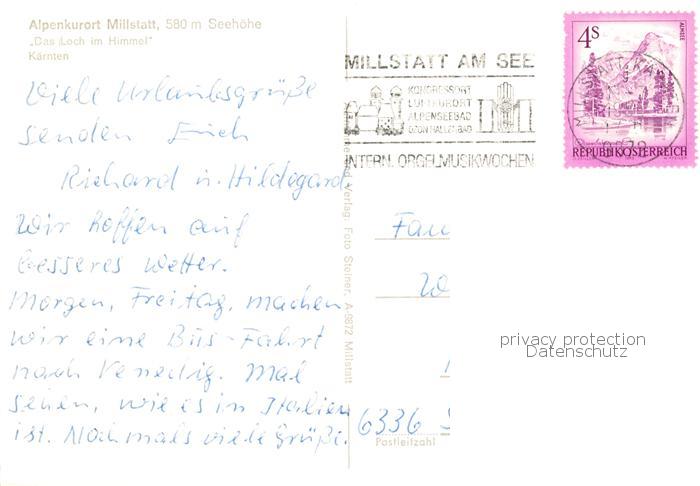 Alpenkurort Millstatt, 580 m Seehöhe
„Das Loch im Himmel"
Kärnten
Viele Urlaubsgrüße
senden Euch
Richard u. Hildegard
Wir hoffen auf
besseres Wetter.
Morgen, Freitag, machen
wir eine Bus-Fahrt
nach Venedig. Mal
sehen, wie es in Italien
ist. Nochmals viele Grüße.
Verlag: Foto Steiner, A-9872 Millstatt
MILLSTATT AM SEE
KONGRESSORT
LUFTKURORT
ALPENSEEBAD
OZON HALLENBAD
INTERN. ORGELMUSIKWOCHEN
4S
ALMSEE
REPUBLIK ÖSTERREICH
Fam
W
6336
Postleitzahl
privacy protection
Datenschutz